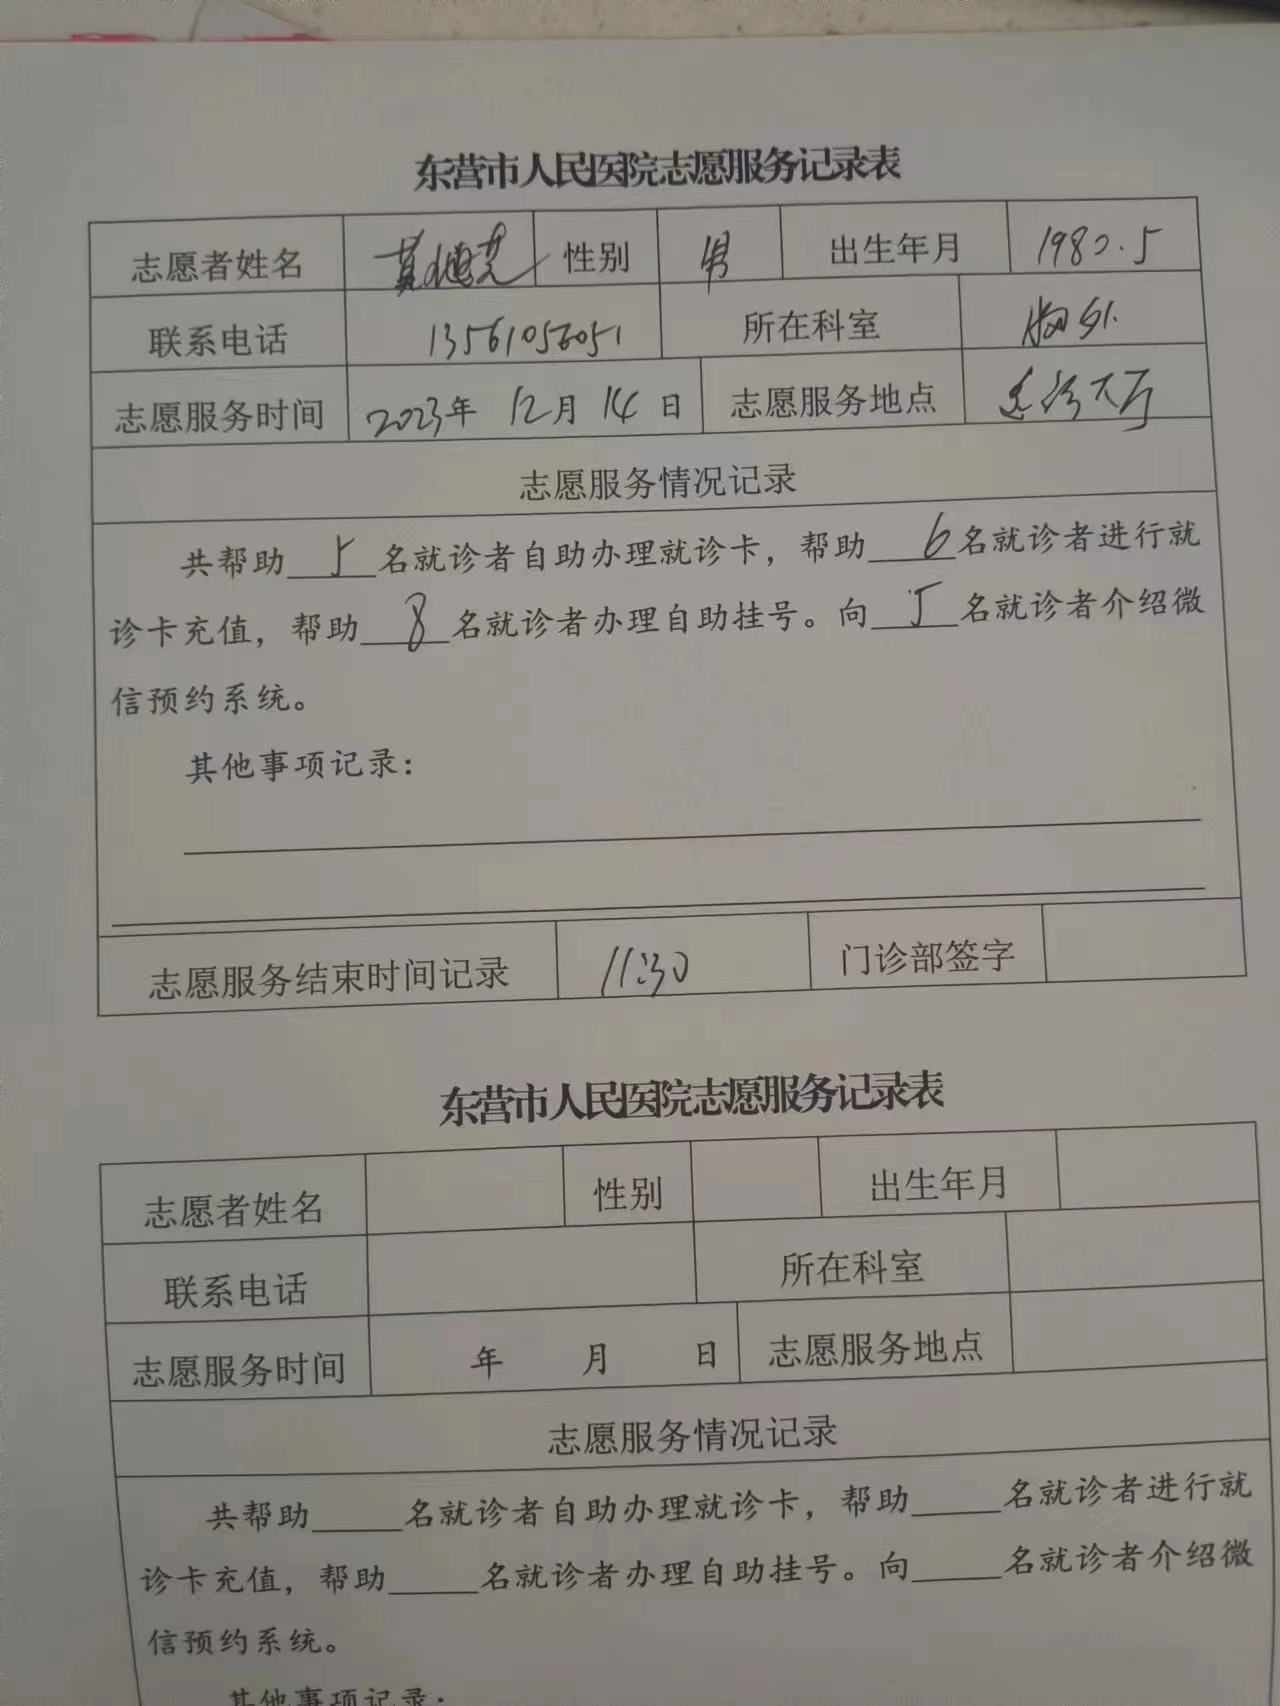 东营市人民医院志愿服务记录表
志愿者姓名 性别 男 出生年月 1980.5
联系电话 13561056051 所在科室 胸外
志愿服务时间 2023年 12月 14日 志愿服务地点 门诊大厅
志愿服务情况记录
共帮助5名就诊者自助办理就诊卡，帮助6名就诊者进行就
诊卡充值，帮助8名就诊者办理自助挂号。向5名就诊者介绍微
信预约系统。
其他事项记录：
志愿服务结束时间记录 11:30 门诊部签字
东营市人民医院志愿服务记录表
志愿者姓名 性别 出生年月
联系电话 所在科室
志愿服务时间 年 月 日 志愿服务地点
志愿服务情况记录
共帮助_____名就诊者自助办理就诊卡，帮助_____名就诊者进行就
诊卡充值，帮助_____名就诊者办理自助挂号。向_____名就诊者介绍微
信预约系统。
其他事项记录：